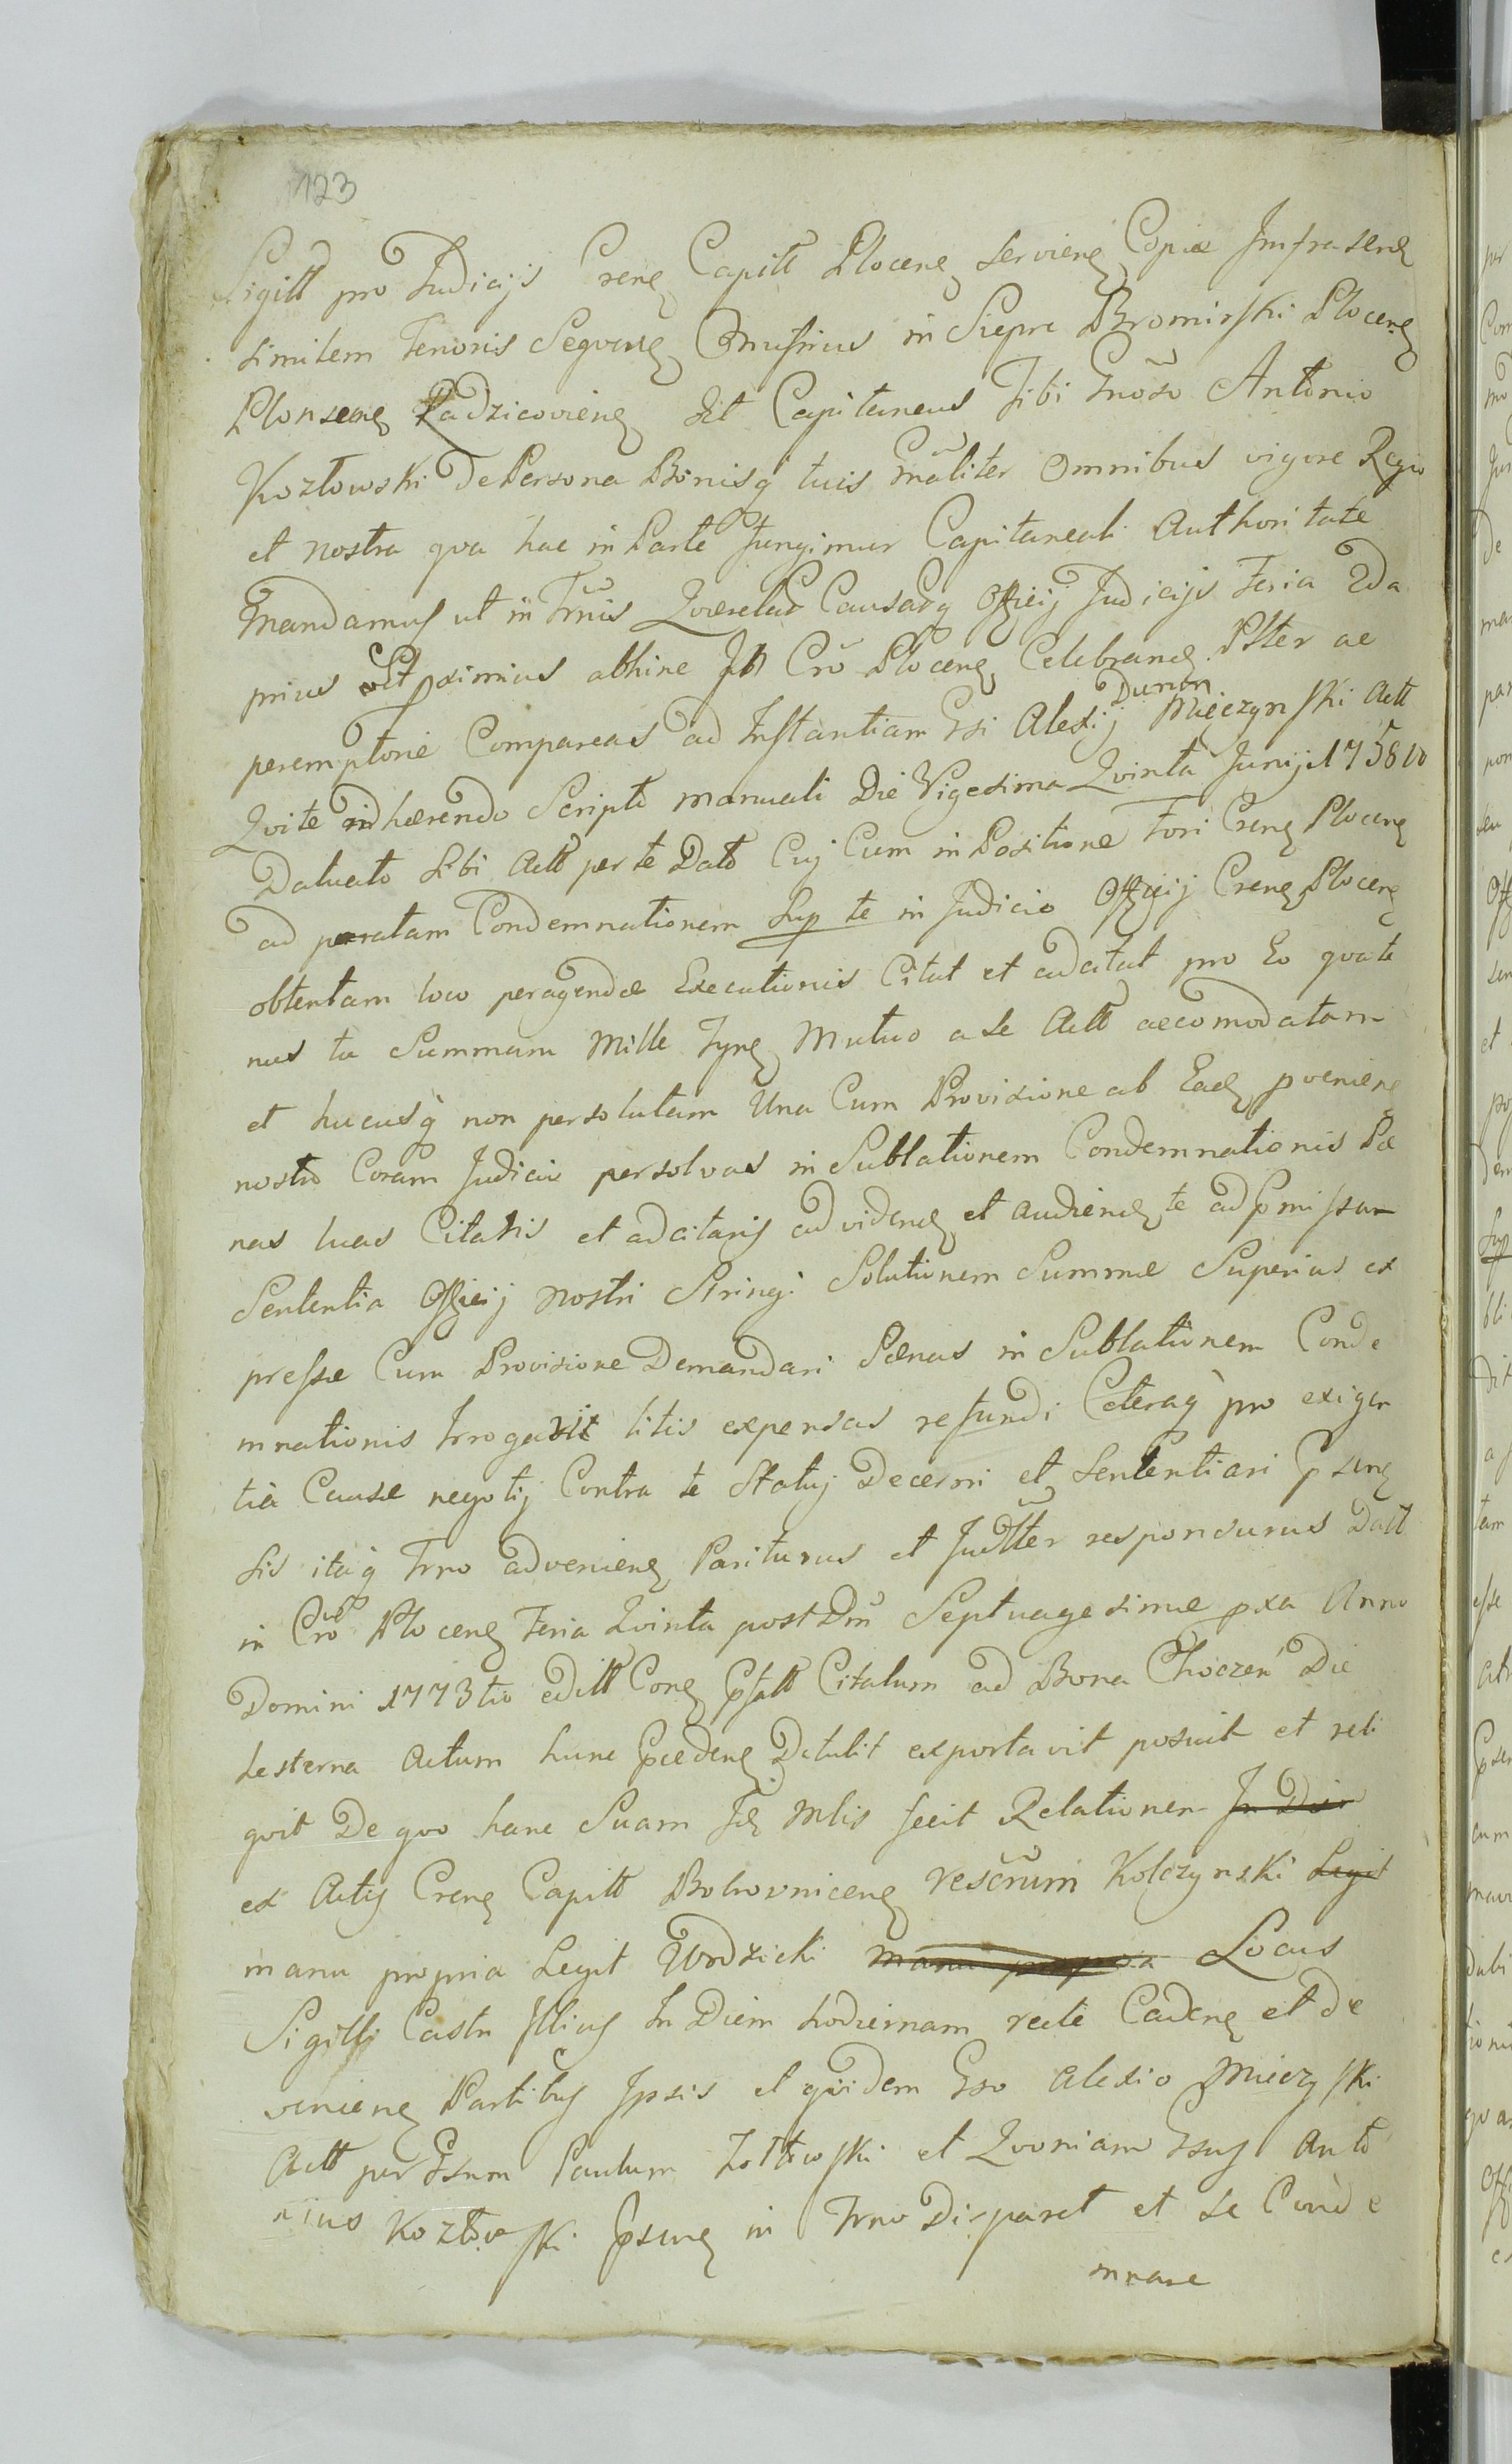 123
Sigill pro Judicijs Crens Capitt Plocens serviens Copiæ Infrascrip
similem Tenoris Seqvens Onufrius in Siepre Bromirski Plocens
Plonscens Radzicoviens Szt Capitaneus Tibi Gnõso Antonio
Kozłowski De Persona Bonisq tuis gnãliter Omnibus vigore Regia
et nostra qva hac in Parte fungimur Capitaneali Authoritate
Mandamus ut in Trnis Qværelar Causarq Officij Judicijs Feria 2da
prius vel pximius abhinc In Crõ Plocens Celebrand Pltter ac
peremptorie Compareas ad Instantiam Gsi Alexij Dunin Mięczynski Actt
Qvi te inhærendo Scripto manuali Die Vigesima Qvinta Junij 1758vo
Datuato Sibi Actt per te Dato Cuj Cum in Positione Fori Crens Plocens
ad paratam Condemnationem Sup te in Judicio Officij Crens Plocens
obtentam loco peragendæ Executionis Citat et adcitat pro Eo qvate
nus tu Summam Mille Tynf Mutuo a Se Actt accomodatam
et hucusq non persolutam Una Cum Provisione ab Eade pveniens
nostro Coram Judicio persolvas in Sublationem Condemnationis Pæ
nas luas Citatis et adcitaris ad vidend et audiend te ad pmissum
Sententia Officij nostri Stringi Solutionem Summæ Superius ex
pressæ Cum Provisione Demandari Pænas in Sublationem Conde
mnationis Irrogari litis expensas refundi Ceteraq pro exigen
tia Causæ negotij Contra te Statuj Decerni et Sententiari Psens
Sis itaq Trno advenien Pariturus et Judltter responsurus Datt
in Crõ Plocens Feria Qvinta post Dm Septuagesimæ pxa Anno
Domini 1773tio editt Cons Psatt Citatum ad Bona Choczeń Die
hesterna Actum hunc Præceden Detulit exportavit posuit et reli
qvit De qvo hanc Suam fid Mlis fecit Relationem In Dier
ex Actis Crens Capitt Bobrovnicens Rescrum Kolczynski Legit
manu propria Legit Wodzicki manu propria Locus
Sigilli Castri Illius In Diem hodiernam recte Caden et de
venien Partibus Ipsis et qvidem Gso Alexio Mieczyski
Actt per Gsum Paulum Zołtowski et Qvoniam Gsus Anto
nius Kozłowski Psens in Trno Disparet et se Conde
mnare